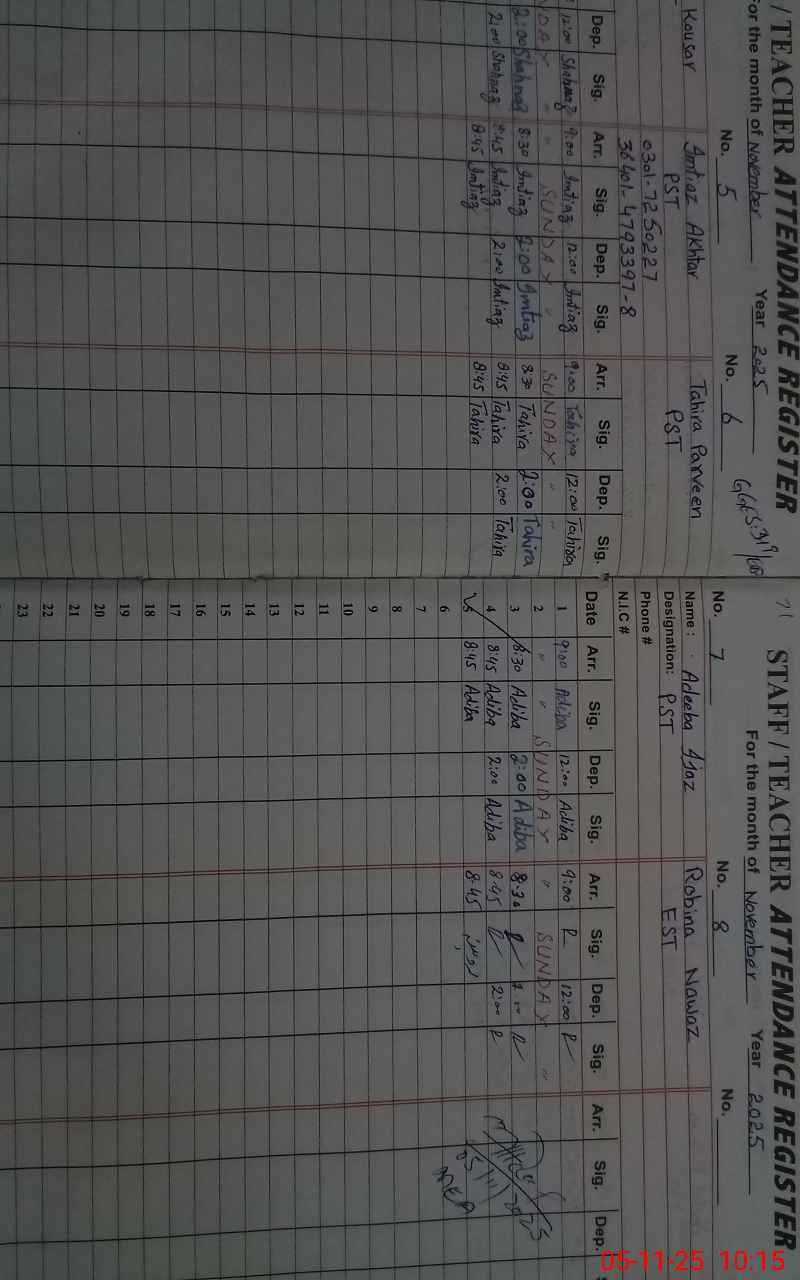 / TEACHER ATTENDANCE REGISTER
For the month of November Year 2025
No. 5 No. 6
Kousar Imtiaz Akhtar Tahira Parveen
PST PST
0301-7250227
36401-4793397-8
Dep. Sig. Arr. Sig. Dep. Sig. Arr. Sig. Dep. Sig.
12:00 Shahnaz 9:00 Imtiaz 12:00 Imtiaz 9:00 Tahira 12:00 Tahira
DAY " " SUNDAY " SUNDAY " "
2:00 Shahnaz 8:30 Imtiaz 2:00 Imtiaz 8:30 Tahira 2:00 Tahira
2:00 Shahnaz 8:45 Imtiaz 2:00 Imtiaz 8:45 Tahira 2:00 Tahira
8:45 Imtiaz 8:45 Tahira
STAFF / TEACHER ATTENDANCE REGISTER
For the month of November Year 2025
No. 7 No. 8 No.
Name: Adeeba Ijaz Robina Nawaz
Designation: PST EST
Phone #
N.I.C #
Date Arr. Sig. Dep. Sig. Arr. Sig. Dep. Sig. Arr. Sig. Dep.
1 9:00 Adiba 12:00 Adiba 9:00 R 12:00 R
2 " " SUNDAY " SUNDAY "
3 8:30 Adiba 2:00 Adiba 8:30 R
4 8:45 Adiba 2:00 Adiba 8:45 R 2:00 R
5 8:45 Adiba 8:45
6
7
8
9
10
11
12
13
14
15
16
17
18
19
20
21
22
23
05-11-25 10:15